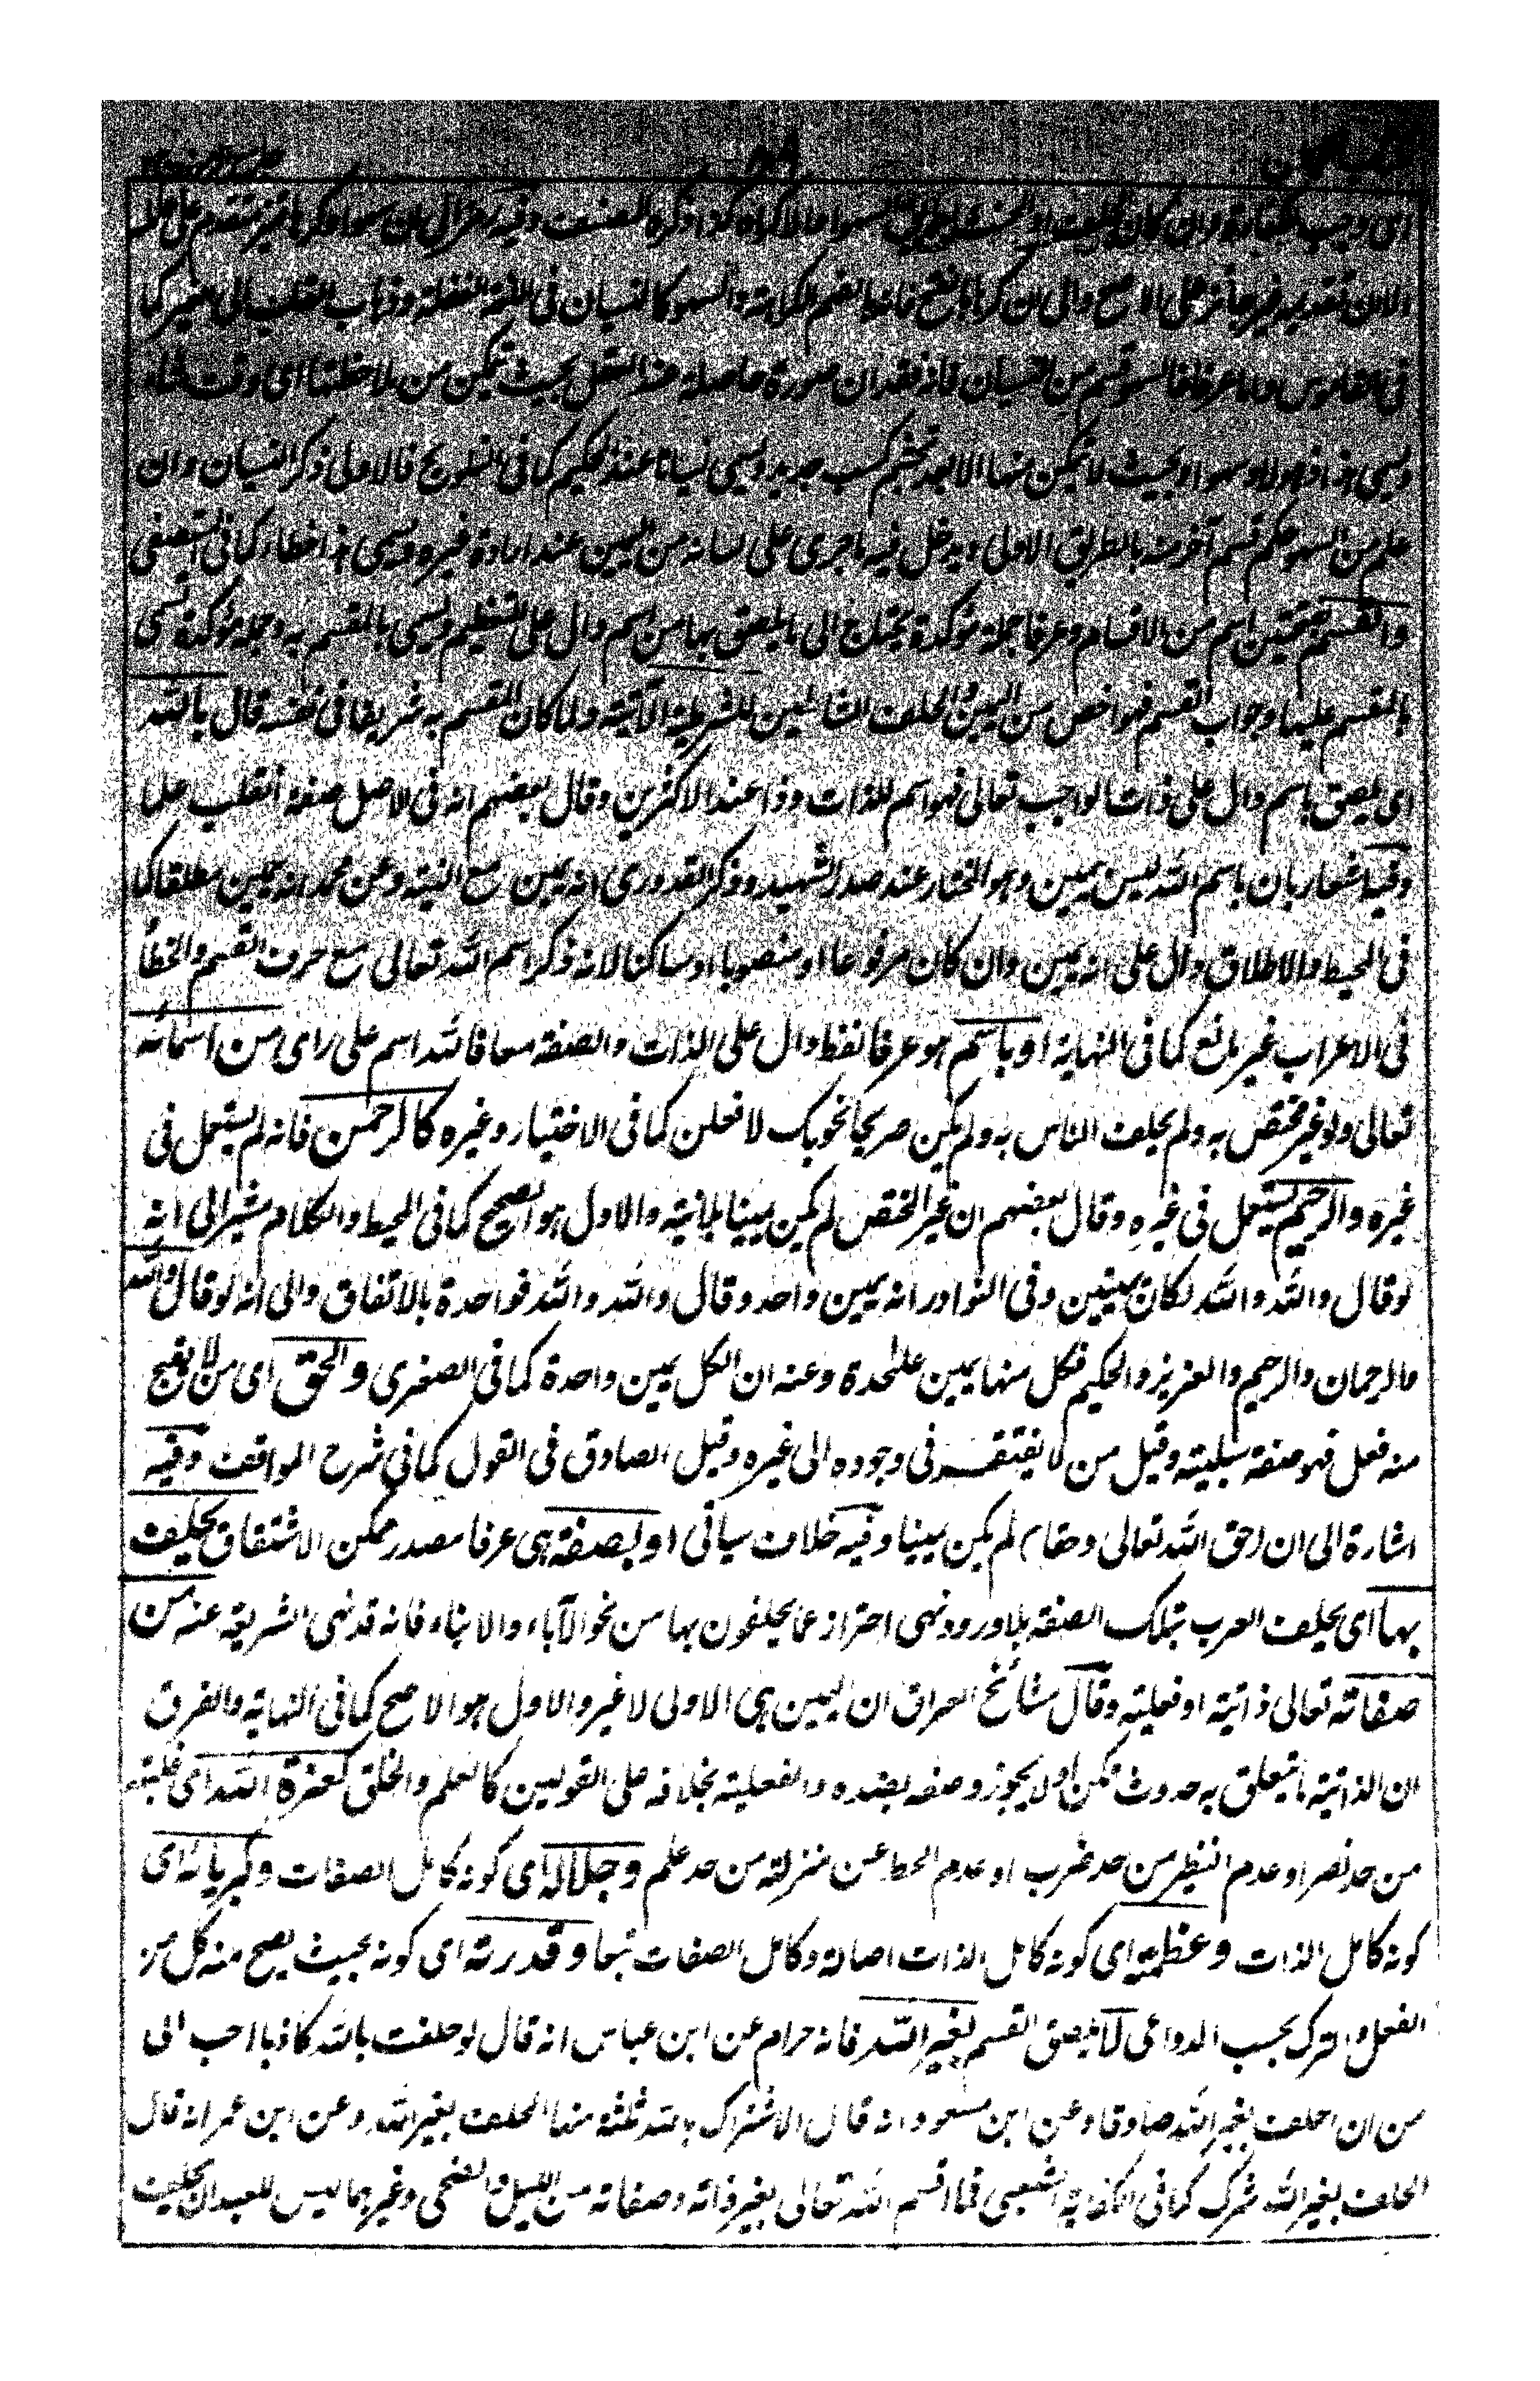 اى وجب الكفارة وان كان الحلف او الحنث بطريق السهوا والاكراه كذا ذكره المصنف وفيه
الان تقديمه غير جائز على الاصح والى ان كرها بالفتح فانها الضم الكراهة والسهو كالنسيان فى اللغة الغفلة وذهاب القلب الى الغير كما
فى القاموس واما عرفا فالسهو قسم من النسيان فانه فقدان صورة حاصلة عند العقل بحيث يتمكن من ملاحظتها اى وقت شاء
ويسمى هذا ذهولا وسهوا او بحيث لا يتمكن منها الا بعد تجشم كسب جديد ويسمى نسيانا عند الحكيم كما فى التلويح فالاولى ذكر النسيان وان
علم من السهو حكم قسم آخر منه بالطريق الاولى ويدخل فيه ما جرى على لسانه من اليمين عند ارادة غيره ويسمى هذا خطاء كما فى
والقسم بفتحتين اسم من الاقسام وعرفا جملة مؤكدة تحتاج الى ما يلصق بها من اسم دال على التعظيم ويسمى بالمقسم به وجملة مؤكدة تسمى
بالمقسم عليها وجواب القسم فهو اخص من اليمين والحلف الشاملين للشرطية الآتية ولما كان المقسم به شريفا فى نفسه قال بالله
اى يلصق باسم دال على ذات الواجب تعالى فهو اسم للذات وذا عند الاكثرين وقال بعضهم انه فى الاصل صفة انقلب علما
وفيه اشعار بان باسم الله ليس بيمين وهو المختار عند صدر الشهيد وذكر القدورى انه يمين مع النية وعن محمد انه يمين مطلقا كما
فى المحيط والاطلاق دال على انه يمين وان كان مرفوعا او منصوبا او ساكنا لانه ذكر اسم الله تعالى مع حرف القسم والخطأ
فى الاعراب غير مانع كما فى النهاية او باسم هو عرفا لفظ دال على الذات والصفة معا فالله اسم على راى من اسمائه
تعالى ولو غير مختص به ولم يحلف الناس به ولم يكن صريحا نحو بك لافعلن كما فى الاختيار وغيره كالرحمن فانه لم يستعمل فى
غيره والرحيم يستعمل فى غيره وقال بعضهم ان غير المختص لم يكن يمينا بلا نية والاول هو الصحيح كما فى المحيط والكلام مشير الى انه
لو قال والله والله لكان يمينين وفى النوادر انه يمين واحد وقال والله والله فواحدة بالاتفاق والى انه لو قال والله
والرحمان والرحيم والعزيز والحكيم فكل منها يمين علٰحدة وعنه ان الكل يمين واحدة كما فى الصغرى والحق اى من لا يقبح
منه فعل فهو صفة سلبية وقيل من لا يفتقر فى وجوده الى غيره وقيل الصادق فى القول كما فى شرح المواقف وفيه
اشارة الى ان (حق الله تعالى وحقا) لم يكن يمينا وفيه خلاف سياتى او بصفة هى عرفا مصدر ممكن الاشتقاق يحلف
بها اى يحلف العرب بتلك الصفة بلا ورود نهى احتراز عما يحلفون بها من نحو الآباء والابناء فانه قد نهى الشريعة عنه من
صفاته تعالى ذاتية او فعلية وقال مشائخ العراق ان اليمين هى الاولى لا غير والاول هو الاصح كما فى النهاية والفرق
ان الذاتية ما يتعلق به حدوث ممكن او لا يجوز وصفه بضده والفعلية بخلافه على القولين كالعلم والخلق كعزة الله اى غلبته
من حد نصر او عدم النظير من حد ضرب او عدم الحط عن منزلته من حد علم وجلاله اى كونه كامل الصفات وكبريائه اى
كونه كامل الذات وعظمته اى كونه كامل الذات اصالة وكامل الصفات تبعا وقدرته اى كونه بحيث يصح منه كل من
الفعل والترك بحسب الدواعى لا يلصق القسم بغير الله فانه حرام عن ابن عباس انه قال لو حلفت بالله كاذبا احب الى
من ان احلف بغير الله صادقا وعن ابن مسعود انه قال الاشتراك بالله ثلثة منها الحلف بغير الله وعن ابن عمر انه قال
الحلف بغير الله شرك كما فى كفاية الشعبى فما اقسم الله تعالى بغير ذاته وصفاته من الليل والضحى وغيرهما ليس للعبد ان يحلف